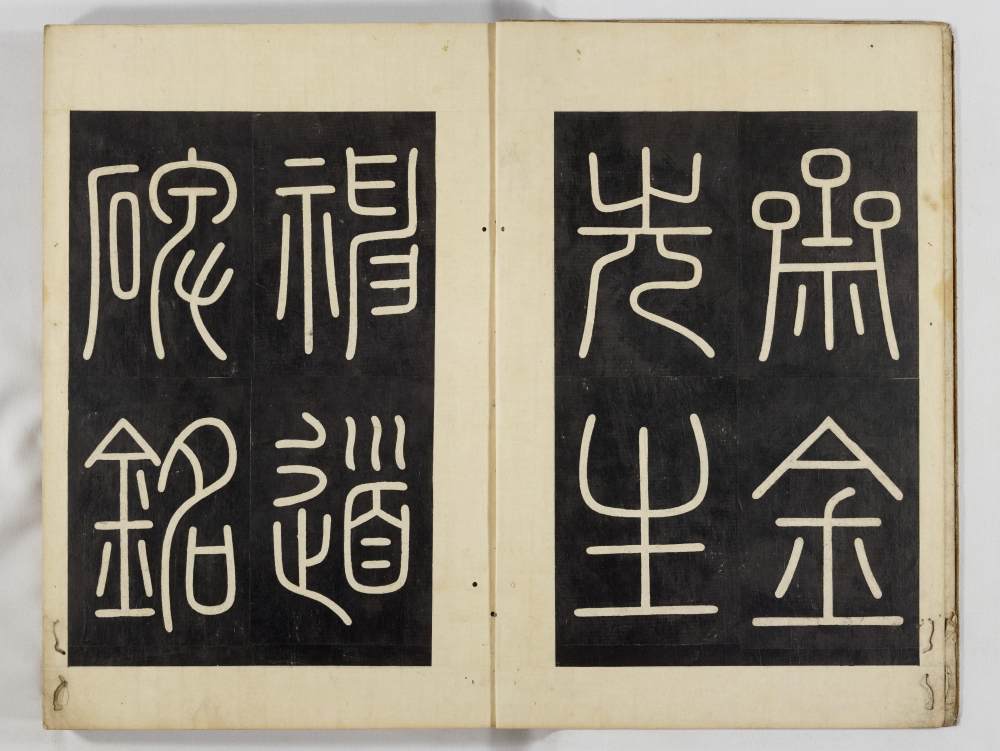 齋金
先生
神道
碑銘